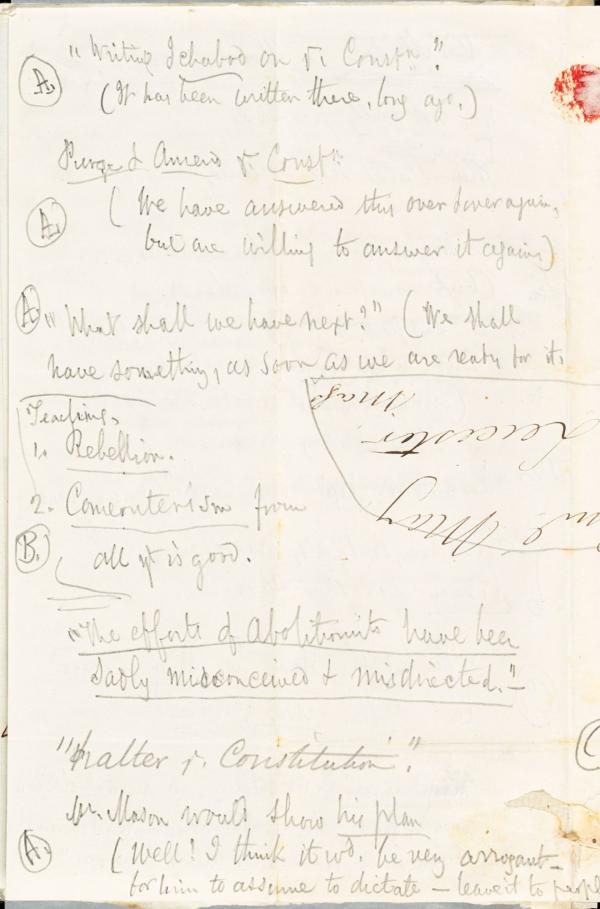 "Writing Ichabod on ye. Constn."
A.
(It has been written there, long ago.)
Purge & Amend ye Constn.
A.
(We have answered this over & over again,
but are willing to answer it again)
A.
"What shall we have next?" (We shall
have something, as soon as we are ready for it.
Teaching.
1. Rebellion.
2. Comeouterism from
B.
all yt is good.
"The efforts of Abolitionists have been
sadly misconceived & misdirected."—
"halter ye. Constitution".
Mr. Mason would show his plan
A.
(Well! I think it wd. be very arrogant—
for him to assume to dictate — leave it to
May
Leicester
Mass